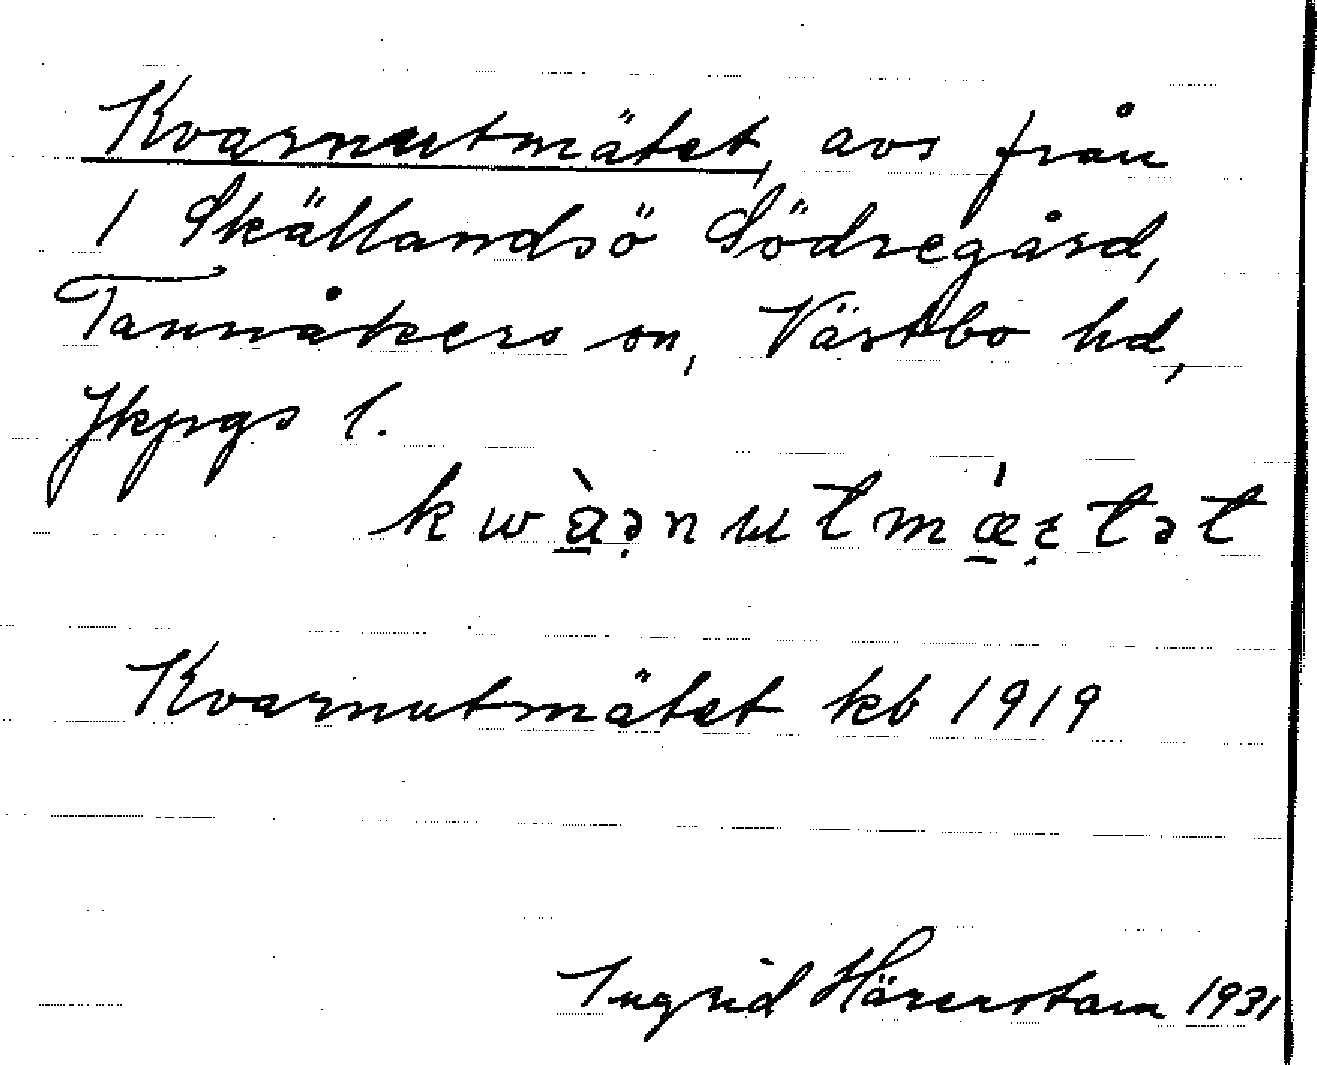 Kvarnutmätet, avs från
1 Skällandsö Södregård,
Tannåkers sn, Västbo hd,
Jkpgs l.
kwà̱ə̣nutmǽ̱ɛ̣tət
Kvarnutmätet kb 1919
Ingrid Härenstam 1931